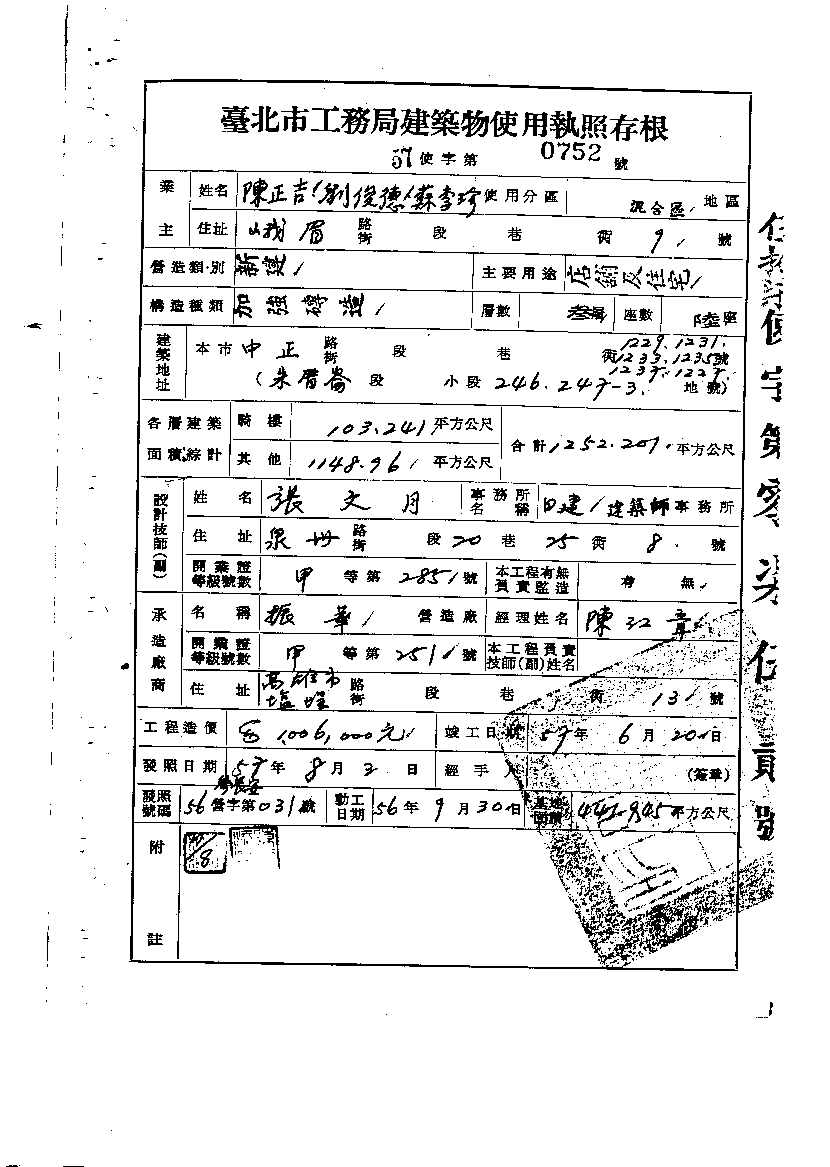 臺北市工務局建築物使用執照存根
57使字第 0752 號
業主 姓名 陳正吉 劉俊德 蘇李珍 使用分區 混合區 地區
住址 峨眉 路街 段 巷 衖 9 號
營造類別 新建 主要用途 店鋪及住宅
構造種類 加強磚造 層數 座數 陸座
建築地址 本市中正 路街 段 巷 衖 1229.1231. 1233.1235號 1237.1227.
(朱厝崙段 小段 246.247-3. 地號)
各層建築面積綜計 騎樓 103.241平方公尺 合計1252.201平方公尺
其他 1148.96 平方公尺
設計技師(副) 姓名 張文月 事務所名稱 日建 建築師事務所
住址 泉州 路街 段 20 巷 25 衖 8 號
開業證等級號數 甲 等第 285 號 本工程有無負責監造 有 無
承造廠商 名稱 振華 營造廠 經理姓名 陳江章
開業證等級號數 甲 等第 251 號 本工程負責技師(副)姓名
住址 高雄市鹽埕 路街 段 巷 衖 131 號
工程造價 1,006,000元 竣工日期 57年 6月 20日
發照日期 57年 8月 2日 經手人 (簽章)
發照號碼 56 營字第031號 動工日期 56年 9月 30日 基地面積 442.945平方公尺
附註
8
使字第零柒伍貳號